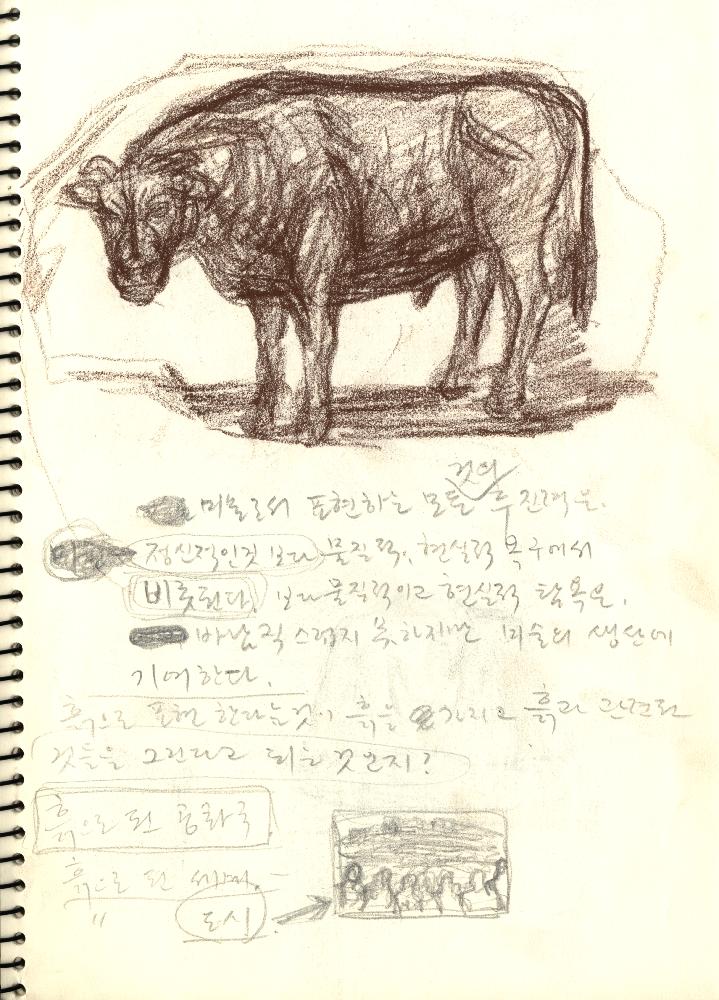 것의
미물로서 표현하는 모든 추진력은.
정신적인것 보다 물질적, 현실적 욕구에서
비롯된다. 보다 물질적이고 현실적 탐욕은.
바람직 스럽지 못하지만 미술의 생산에
기여한다.
흙으로 표현 한다는것이 흙을 가지고 흙과 관련된
것들을 그린다고 되는 것인지?
흙으로 된 공화국
흙으로 된 세계.
〃 도시